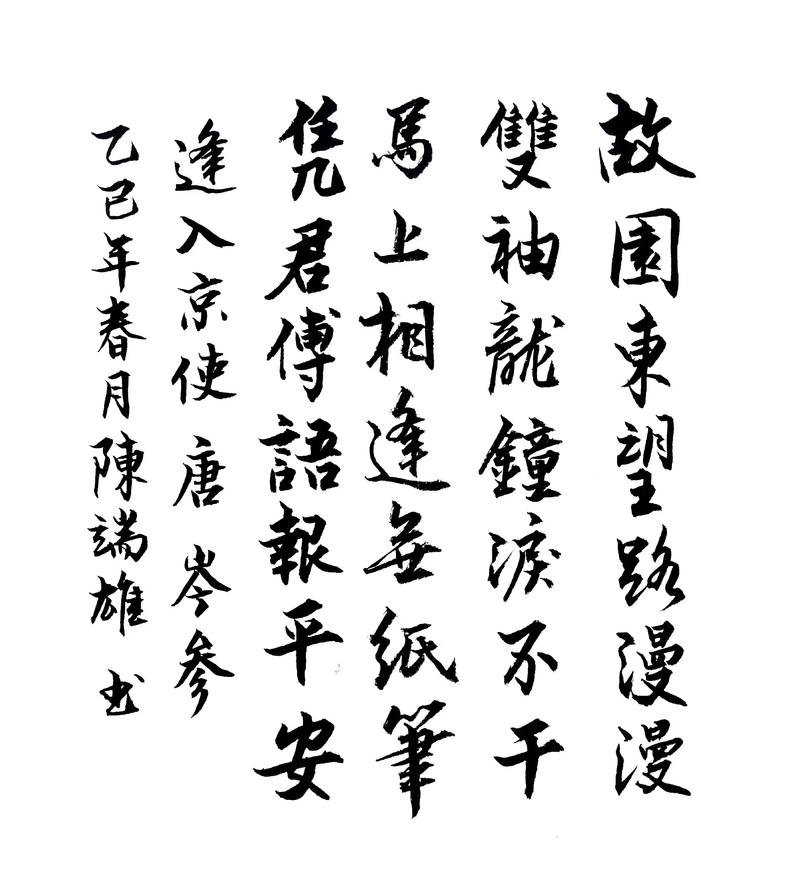 故園東望路漫漫
雙袖龍鐘淚不干
馬上相逢無紙筆
凭君傳語報平安
逢入京使 唐 岑參
乙巳年春月陳端雄 书